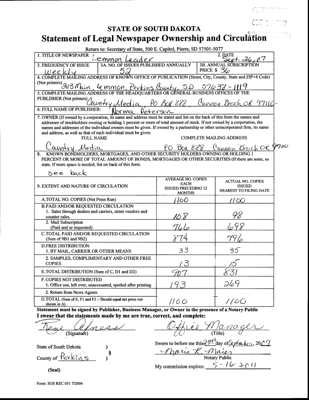 STATE OF SOUTH DAKOTA
Statement of Legal Newspaper Ownership and Circulation
Return to: Secretary of State, 500 E. Capitol, Pierre, SD 57501-5077
1. TITLE OF NEWSPAPER
Lemmon Leader
2. DATE
Sept. 26, 07
3. FREQUENCY OF ISSUE
Weekly
3A. NO. OF ISSUES PUBLISHED ANNUALLY
52
3B. ANNUAL SUBSCRIPTION
PRICE $ 36
4. COMPLETE MAILING ADDRESS OF KNOWN OFFICE OF PUBLICATION (Street, City, County, State and ZIP+4 Code)
(Not printers)
Main, Lemmon, Perkins County, SD 57638-1119
5. COMPLETE MAILING ADDRESS OF THE HEADQUARTERS OR GENERAL BUSINESS OFFICES OF THE
PUBLISHER (Not printers)
Country Media PO Box 888 Cannon Beach OR 97110
6. FULL NAME OF PUBLISHER:
Norma Peterson
7. OWNER (If owned by a corporation, its name and address must be stated and list on the back of this form the names and
addresses of stockholders owning or holding 1 percent or more of total amount of stock. If not owned by a corporation, the
names and addresses of the individual owners must be given. If owned by a partnership or other unincorporated firm, its name
and address, as well as that of each individual must be given.
FULL NAME
COMPLETE MAILING ADDRESS
Country Media
PO Box 888 Cannon Beach OR 97110
8. KNOWN BONDHOLDERS, MORTGAGEES, AND OTHER SECURITY HOLDERS OWNING OR HOLDING 1
PERCENT OR MORE OF TOTAL AMOUNT OF BONDS, MORTGAGES OR OTHER SECURITIES (If there are none, so
state. If more space is needed, list on back of this form.
See back
9. EXTENT AND NATURE OF CIRCULATION
AVERAGE NO. COPIES
EACH
ISSUED PRECEDING 12
MONTHS
ACTUAL NO. COPIES
ISSUED
NEAREST TO FILING DATE
A. TOTAL NO. COPIES (Net Press Run)
1100
1100
B. PAID AND/OR REQUESTED CIRCULATION
1. Sales through dealers and carriers, street vendors and
counter sales.
108
98
2. Mail Subscription
(Paid and/or requested)
766
698
C. TOTAL PAID AND/OR REQUESTED CIRCULATION
(Sum of 9B1 and 9B2)
874
796
D. FREE DISTRIBUTION
1. BY MAIL, CARRIER OR OTHER MEANS
33
35
2. SAMPLES, COMPLIMENTARY AND OTHER FREE
COPIES
15
E. TOTAL DISTRIBUTION (Sum of C, D1 and D2)
907
831
F. COPIES NOT DISTRIBUTED
1. Office use, left over, unaccounted, spoiled after printing
193
269
2. Return from News Agents
G. TOTAL (Sum of E, F1 and F2 - Should equal net press run
shown in A)
1100
1100
Statement must be signed by Publisher, Business Manager, or Owner in the presence of a Notary Public
I swear that the statements made by me are true, correct, and complete:
Office Manager
(Signature)
(Title)
State of South Dakota )
County of Perkins )
§
Sworn to before me this day of September, 2007
Marie K.
Notary Public
(Seal)
My commission expires: 5-16-2011
Form: SOS REC 051 7/2004